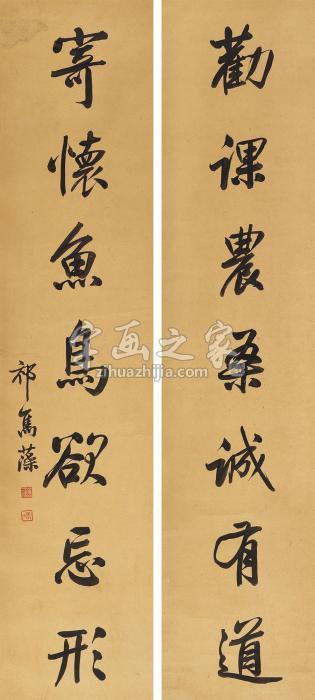 劝課農桑诚有道
寄懷魚鳥欲忘形
祁寯藻
字画之家
zihuazhijia.com